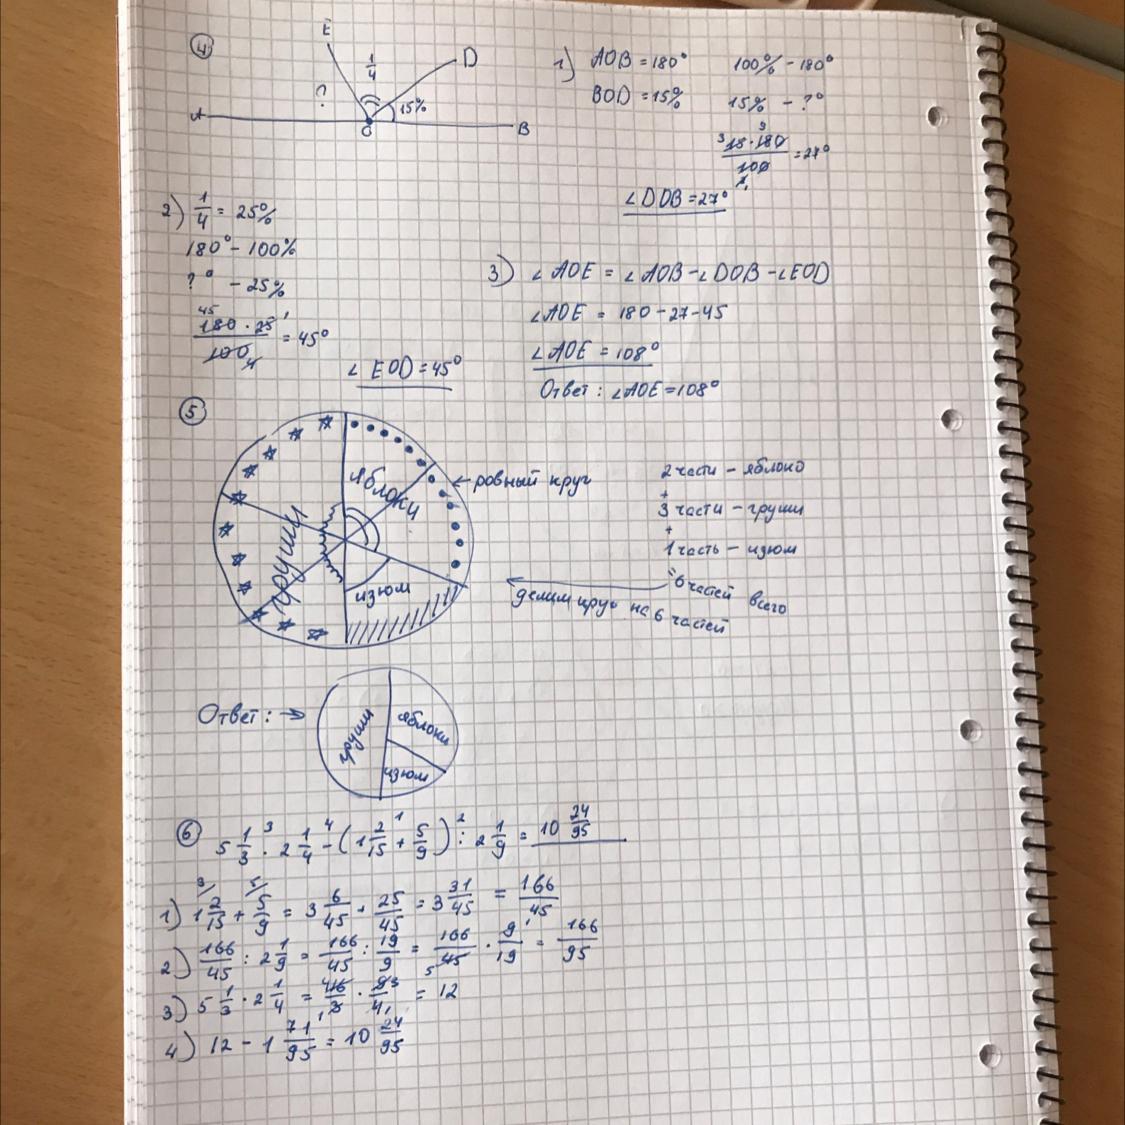 4
E
1/4
D
?
15%
A
O
B
1) AOB = 180°
BOD = 15%
100% - 180°
15% - ?°
15 · 180 / 100 = 27°
3 9
1
∠DOB = 27°
2) 1/4 = 25%
180° - 100%
?° - 25%
180 · 25 / 100 = 45°
45 1
4
∠EOD = 45°
3) ∠AOE = ∠AOB - ∠DOB - ∠EOD
∠AOE = 180 - 27 - 45
∠AOE = 108°
Ответ: ∠AOE = 108°
5
яблоки
груши
изюм
← ровный круг
2 части - яблоко
+
3 части - груши
+
1 часть - изюм
= 6 частей всего
делим круг на 6 частей
Ответ: →
груши
яблоки
изюм
6
5 1/3 · 2 1/4 - (1 2/15 + 5/9) : 2 1/9 = 10 24/95
3 4 1 2
1) 1 2/15 + 5/9 = 3 6/45 + 25/45 = 3 31/45 = 166/45
3 5
2) 166/45 : 2 1/9 = 166/45 : 19/9 = 166/45 · 9/19 = 166/95
5 1
3) 5 1/3 · 2 1/4 = 16/3 · 9/4 = 12
4 3
1 1
4) 12 - 1 71/95 = 10 24/95